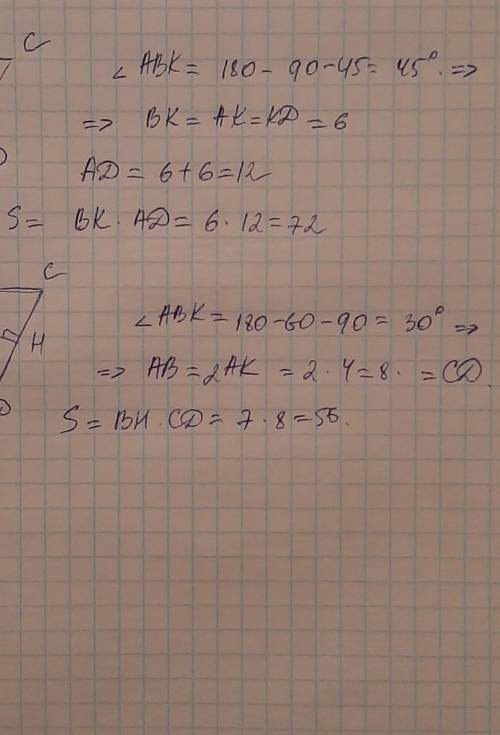 C
∠ABK = 180 - 90 - 45 = 45°. =>
=> BK = AK = KD = 6
D
AD = 6 + 6 = 12
S = BK · AD = 6 · 12 = 72
C
∠ABK = 180 - 60 - 90 = 30° =>
H
=> AB = 2AK = 2 · 4 = 8 · = CD.
D
S = BH · CD = 7 · 8 = 56.